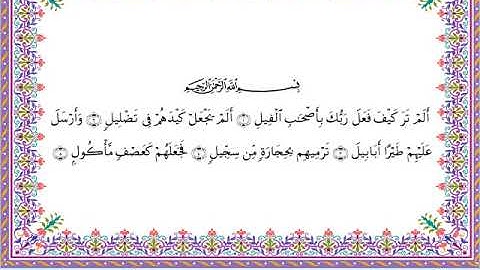 بِسْمِ اللَّهِ الرَّحْمَٰنِ الرَّحِيمِ
أَلَمْ تَرَ كَيْفَ فَعَلَ رَبُّكَ بِأَصْحَٰبِ ٱلْفِيلِ ۝١ أَلَمْ يَجْعَلْ كَيْدَهُمْ فِى تَضْلِيلٍ ۝٢ وَأَرْسَلَ
عَلَيْهِمْ طَيْرًا أَبَابِيلَ ۝٣ تَرْمِيهِم بِحِجَارَةٍ مِّن سِجِّيلٍ ۝٤ فَجَعَلَهُمْ كَعَصْفٍ مَّأْكُولٍۭ ۝٥